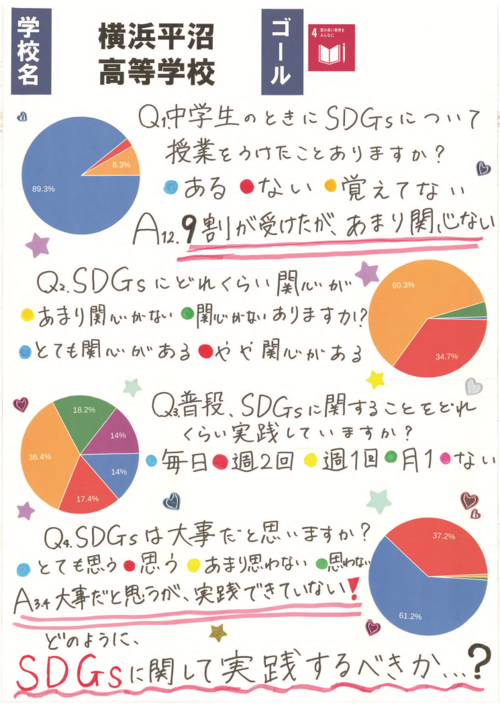 学校名
横浜平沼
高等学校
ゴール
4 質の高い教育を
みんなに
Q1.中学生のときにSDGsについて
授業をうけたことありますか?
ある ない 覚えてない
89.3%
8.3%
A1,2. 9割が受けたが、あまり関心ない
Q2.SDGsにどれくらい関心が
あまり関心がない 関心がない ありますか?
とても関心がある やや関心がある
60.3%
34.7%
Q3.普段、SDGsに関することをどれ
くらい実践していますか?
毎日 週2回 週1回 月1 ない
18.2%
14%
36.4%
14%
17.4%
Q4.SDGsは大事だと思いますか?
とても思う 思う あまり思わない 思わない
37.2%
61.2%
A3,4 大事だと思うが、実践できていない!
どのように、
SDGsに関して実践するべきか...?